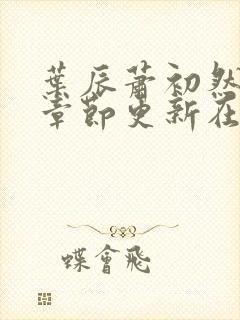 葉辰蕭初然
章節更新在
蝶會飛